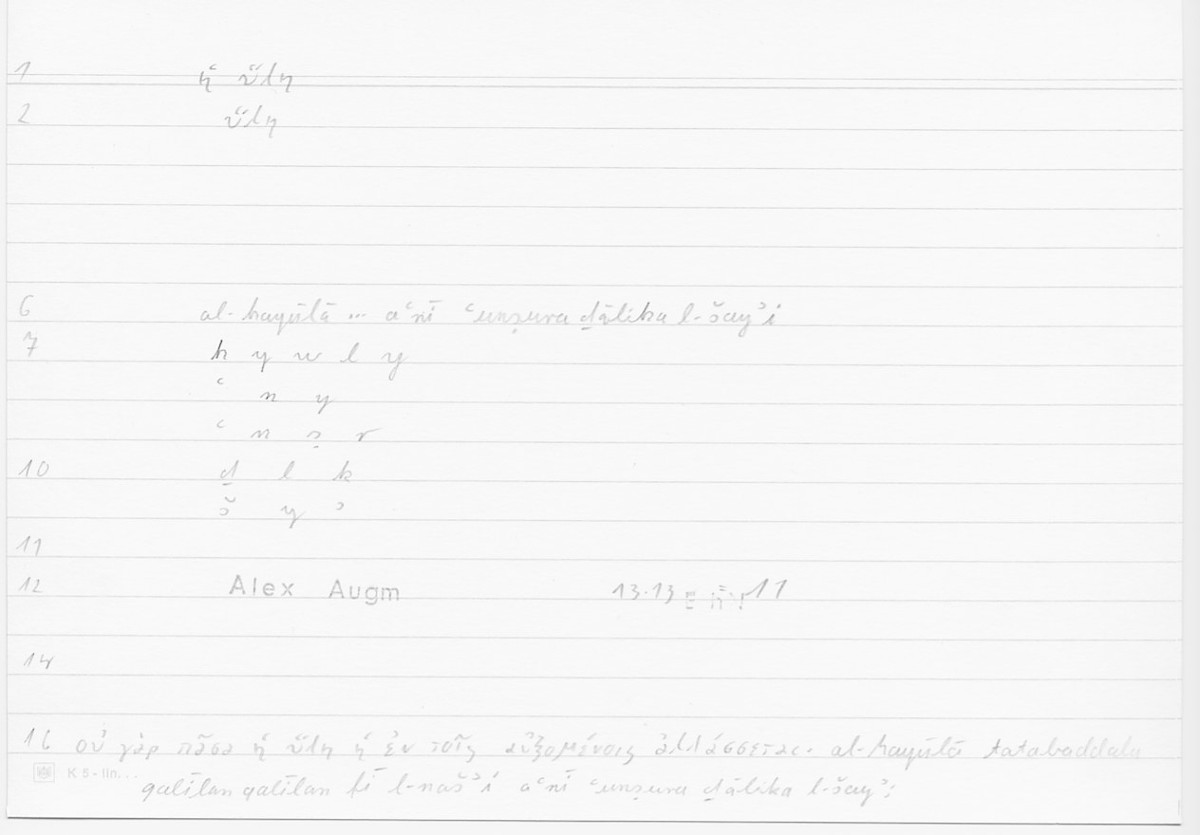 1 ἡ ὕλη
2 ὕλη
6 al-hayūlā ... aʿnī ʿunṣura ḏālika l-šayʾi
7 h y w l y
ʿ n y
ʿ n ṣ r
10 ḏ l k
š y ʾ
11
12 Alex Augm 13.13 11
14
16 οὐ γὰρ πᾶσα ἡ ὕλη ἡ ἐν τοῖς αὐξομένοις ἀλλάσσεται. al-hayūlā tatabaddalu
K 5 - lin...
qalīlan qalīlan fī l-našʾi aʿnī ʿunṣura ḏālika l-šayʾi